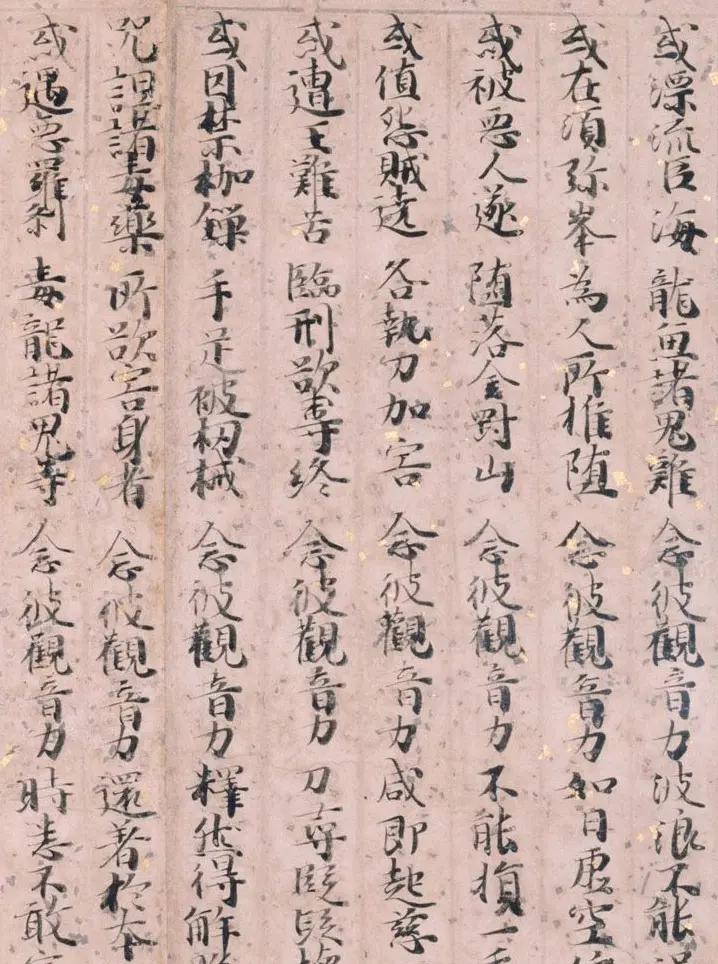 或漂流巨海 龍魚諸鬼難 念彼觀音力 波浪不能
或在須弥峯 為人所推堕 念彼觀音力 如日虚空
或被惡人逐 堕落金剛山 念彼觀音力 不能損一
或值怨賊遶 各執刀加害 念彼觀音力 咸即起慈
或遭王難苦 臨刑欲壽終 念彼觀音力 刀尋段段
或囚禁枷鎖 手足被杻械 念彼觀音力 釋然得解
呪詛諸毒藥 所欲害身者 念彼觀音力 還著於本
或遇惡羅刹 毒龍諸鬼等 念彼觀音力 時悉不敢